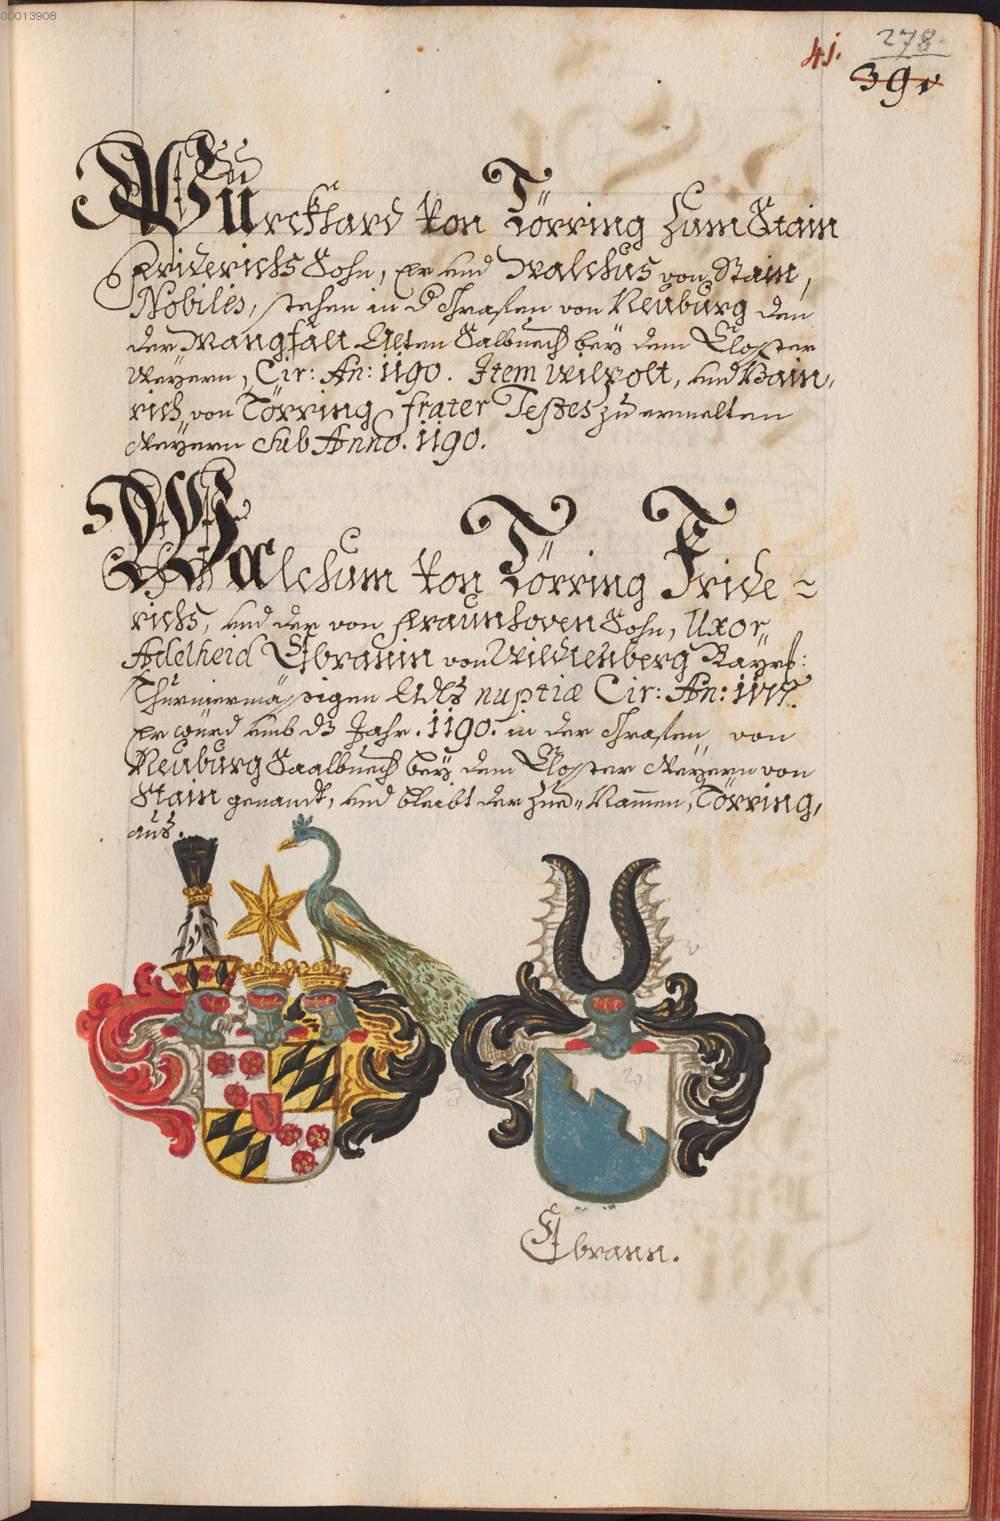 00013908
41. 278.
39v
Würckhard von Törring zum Stain
Friderichs Sohn, Er und Walchus von Stain,
Nobiles, stehen in d Thrasen von Neuburg den
der Mangfalt Alten Salbuech bey dem Closter
Weyern, Cir: An: 1190. Item Wilpolt, und Hain,,
rich von Törring frater Testes zu ermelten
Weyern sub Anno. 1190.
Walchum von Törring Fride ~
richs, und der von Fraunhoven Sohn, Uxor,,
Adelheid Ebrann von Wildenberg Bayrs:
Thurniermässigen Adls nuptiæ Cir: An: 1177.
Er würd umb ds Jahr. 1190. in der Thrasen von
Neuburg Saalbuech bey dem Closter Weyern von
Stain genandt, und bleibt der Zue,, Namen, Törring,
aus.
Ebrann.